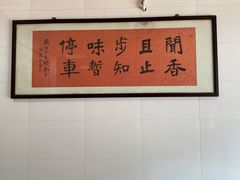 聞香
且止
步知
味暫
停車